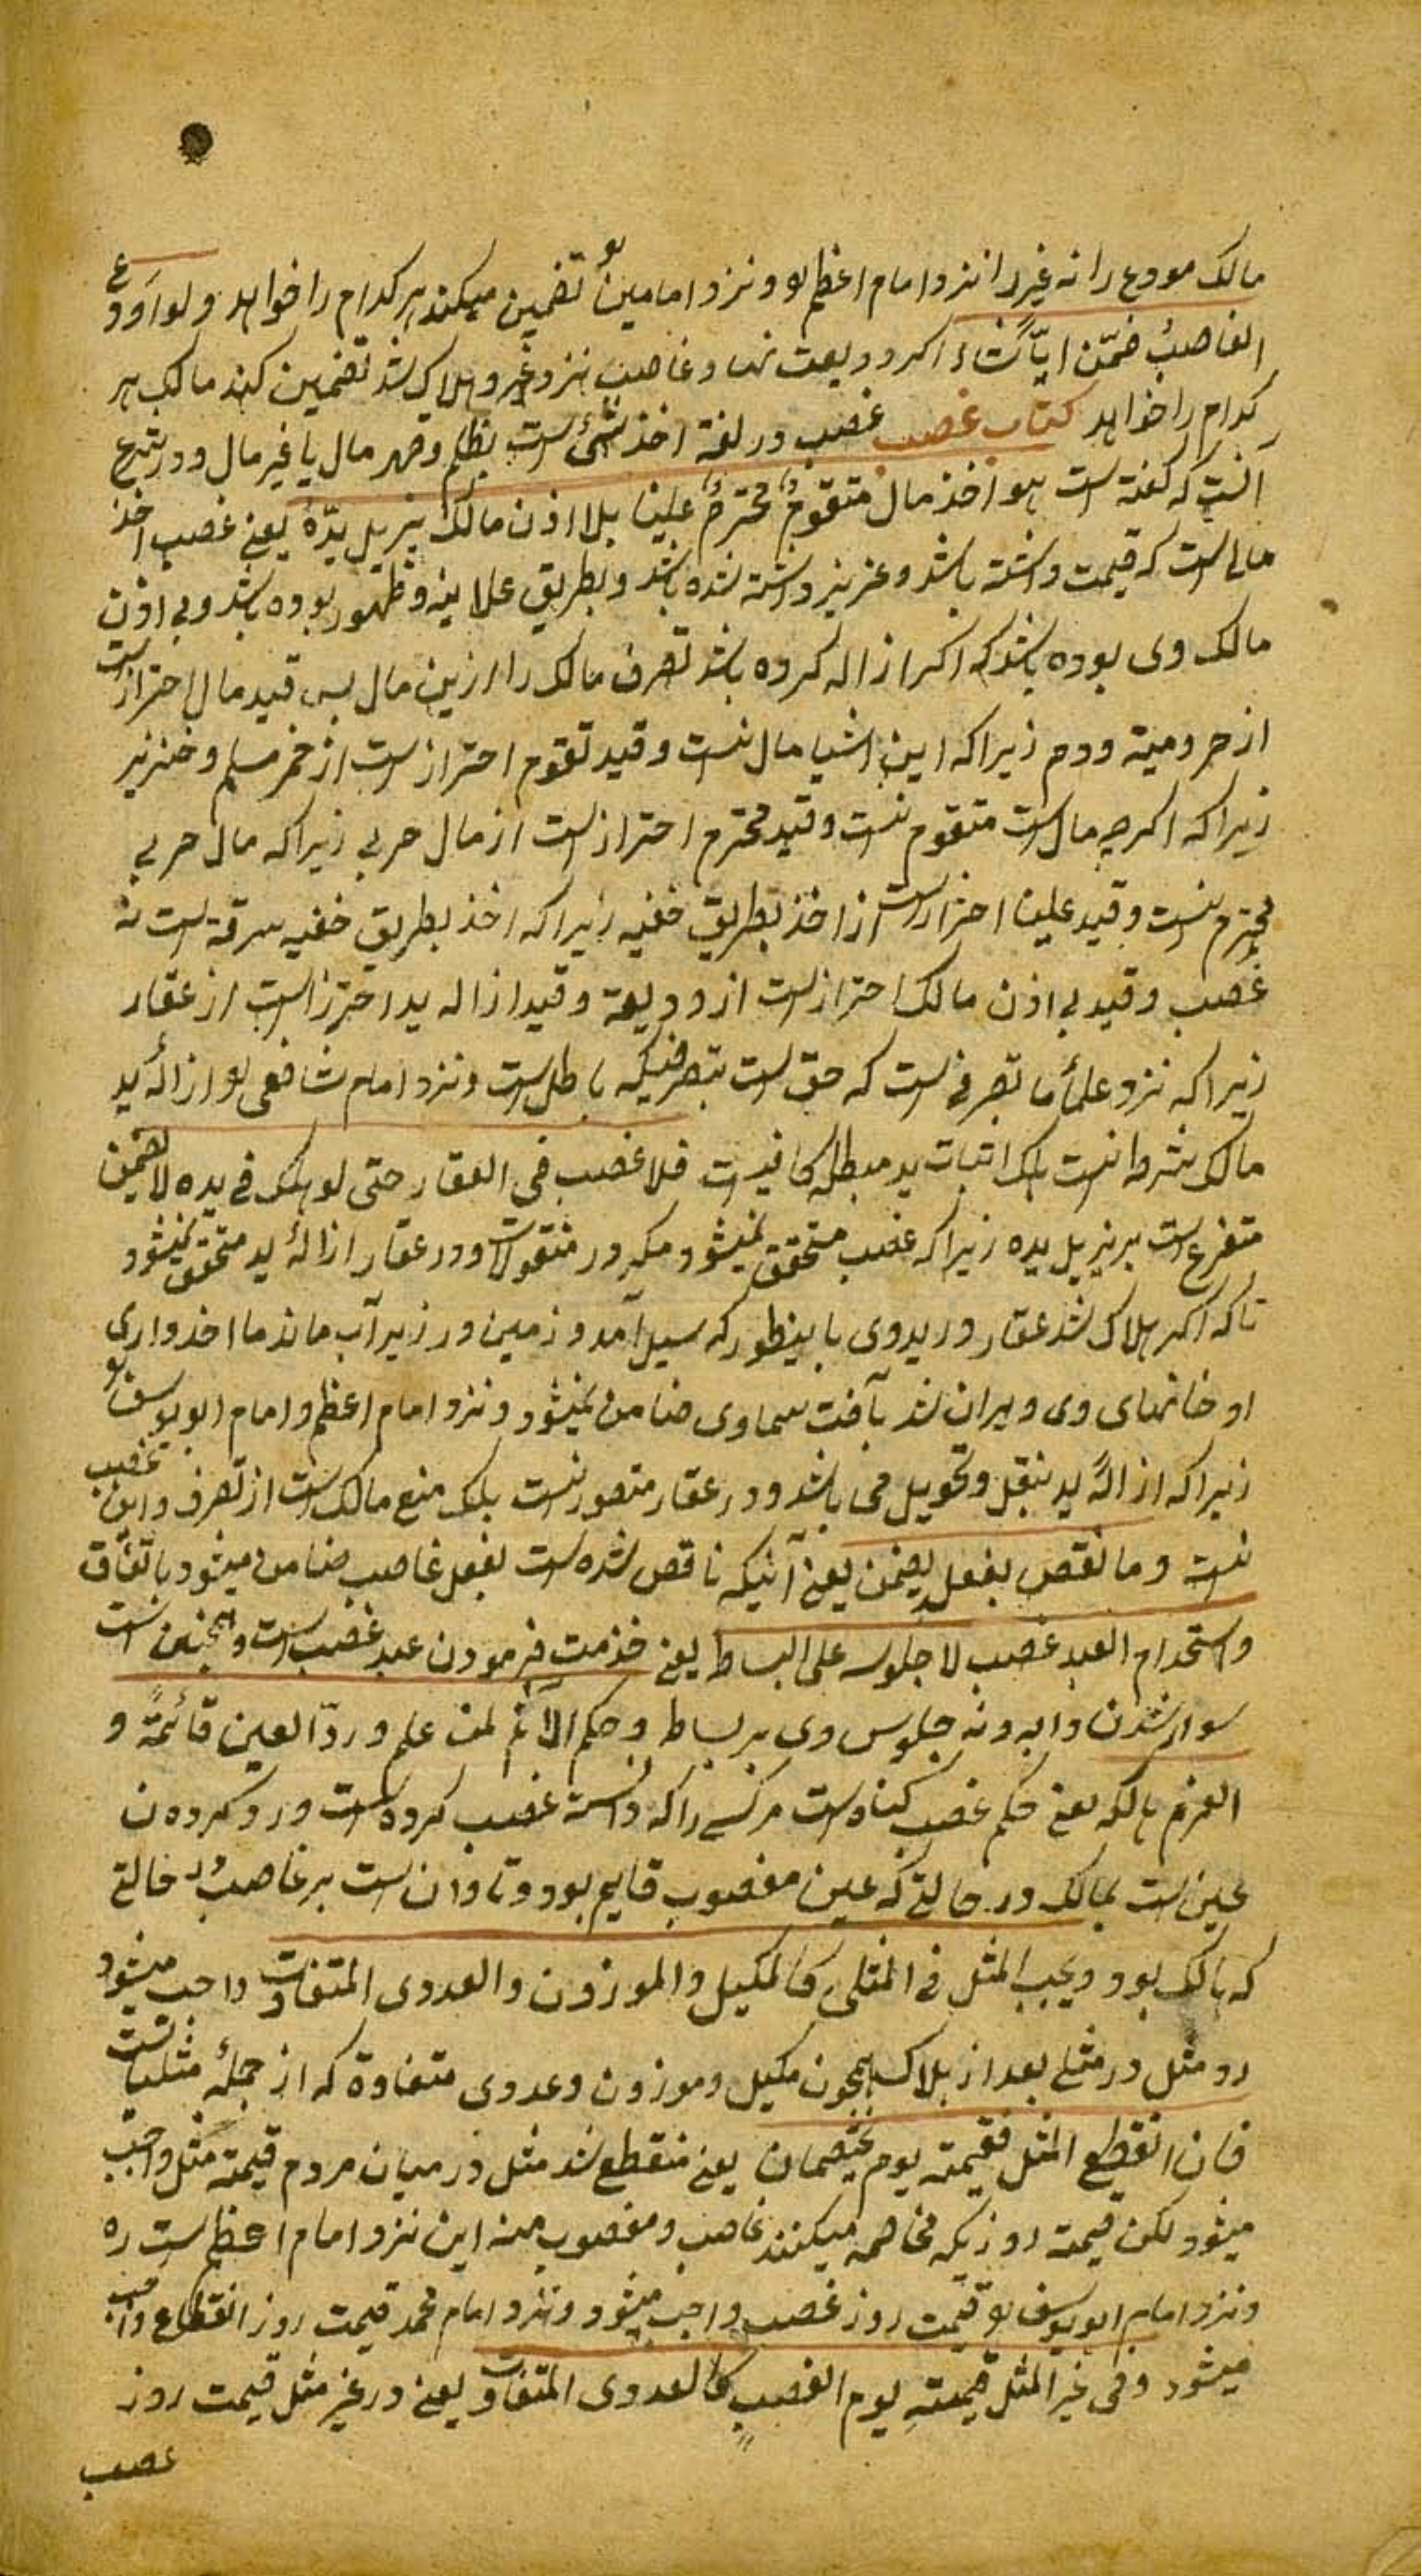 مالک مودع را نه غیر را نزد امام اعظم و نزد امامین تضمین میکند هر کدام را خواهد ولو اودع
الغاصب ضمّن ایّاً شاء اکر ودیعت نهاد غاصب نزد غیر و هلاک شد تضمین کند مالک هر
کدام را خواهد کتاب غصب غصب در لغة اخذ شئ است بظلم و قهر مال یا غیر مال و در شرع
آنست که کفته است هو اخذ مال متقوم محترم علینا بلا اذن مالک یزیل یدّه یعنی غصب اخذ
مالی است که قیمت داشته باشد و عزیز داشته شده باشد و بطریق علانیه و ظهور بوده باشد و بی اذن
مالک وی بوده باشد که اکر ازاله کرده باشد تصرف مالک را ازین مال بس قید مال احتراز است
از حر و میته و دم زیرا که این اشیا مال نیست و قید تقوم احتراز است از خمر مسلم و خنزیر
زیرا که اکرچه مال است متقوم نیست و قید محترم احتراز است از مال حربی زیرا که مال حربی
محترم نیست و قید علینا احتراز است از اخذ بطریق خفیه زیرا که اخذ بطریق خفیه سرقة است نه
غصب و قید بی اذن مالک احتراز است از ودیعة و قید ازاله ید احتراز است از عقار
زیرا که نزد علماء ما تصرفی است که حق است بتصرفیکه باطل است و نزد امام شافعی ازالهٔ ید
مالک شرط نیست بلکه اثبات ید مبطله کافیست فلا غصب فی العقار حتی لو هلک فی یده لا یضمن
متفرع است بر یزیل یده زیرا که غصب متحقق نمیشود مکر در منقولات و در عقار ازالهٔ ید متحقق نمیشود
تا که اکر هلاک شد عقار در ید وی باینطور که سیل آمد و زمین در زیر آب ماند ما اخذ داری
او خانهای وی ویران شد بآفت سماوی ضامن نمیشود و نزد امام اعظم و امام ابو یوسف
زیرا که ازالهٔ ید بنقل و تحویل می باشد و در عقار متصور نیست بلک منع مالک است از تصرف و این غصب
نیست و ما نقص بفعل یضمن یعنی آنیکه ناقص شده است بفعل غاصب ضامن میشود باتفاق
و استخدام العبد غصب لا جلوسه علی البساط یعنی خذمت فرمودن عبد غصب است و همچنین است
سوار شدن دابه و نه جلوس وی بر بساط و حکم الاثم لمن علم و ردّ العین قائمةً و
الغرم هالکه یعنی حکم غصب کناه است مر کسی را که دانسته غصب کرده است و رد کردن
عین است بمالک در حالتی که عین مغصوب قایم بود و تاوان است بر غاصب در حالتی
که هالک بود و یجب المثل فی المثلی کالمکیل و الموزون و العددی المتفاوت واجب میشود
رد مثل در مثلی بعد از هلاک همچون مکیل و موزون و عددی متفاوة که از جملهٔ مثلیات است
فان انقطع المثل فقیمته یوم یختصمان یعنی منقطع شد مثل در میان مردم قیمته مثل واجب
میشود لکن قیمت روزیکه مخاصمه میکنند غاصب و مغصوب منه این نزد امام اعظم است ره
و نزد امام ابو یوسف قیمت روز غصب واجب میشود و نزد امام محمد قیمت روز انقطاع واجب
میشود و فی غیر المثل قیمته یوم الغصب کالعددی المتفاوت یعنی در غیر مثل قیمت روز
غصب